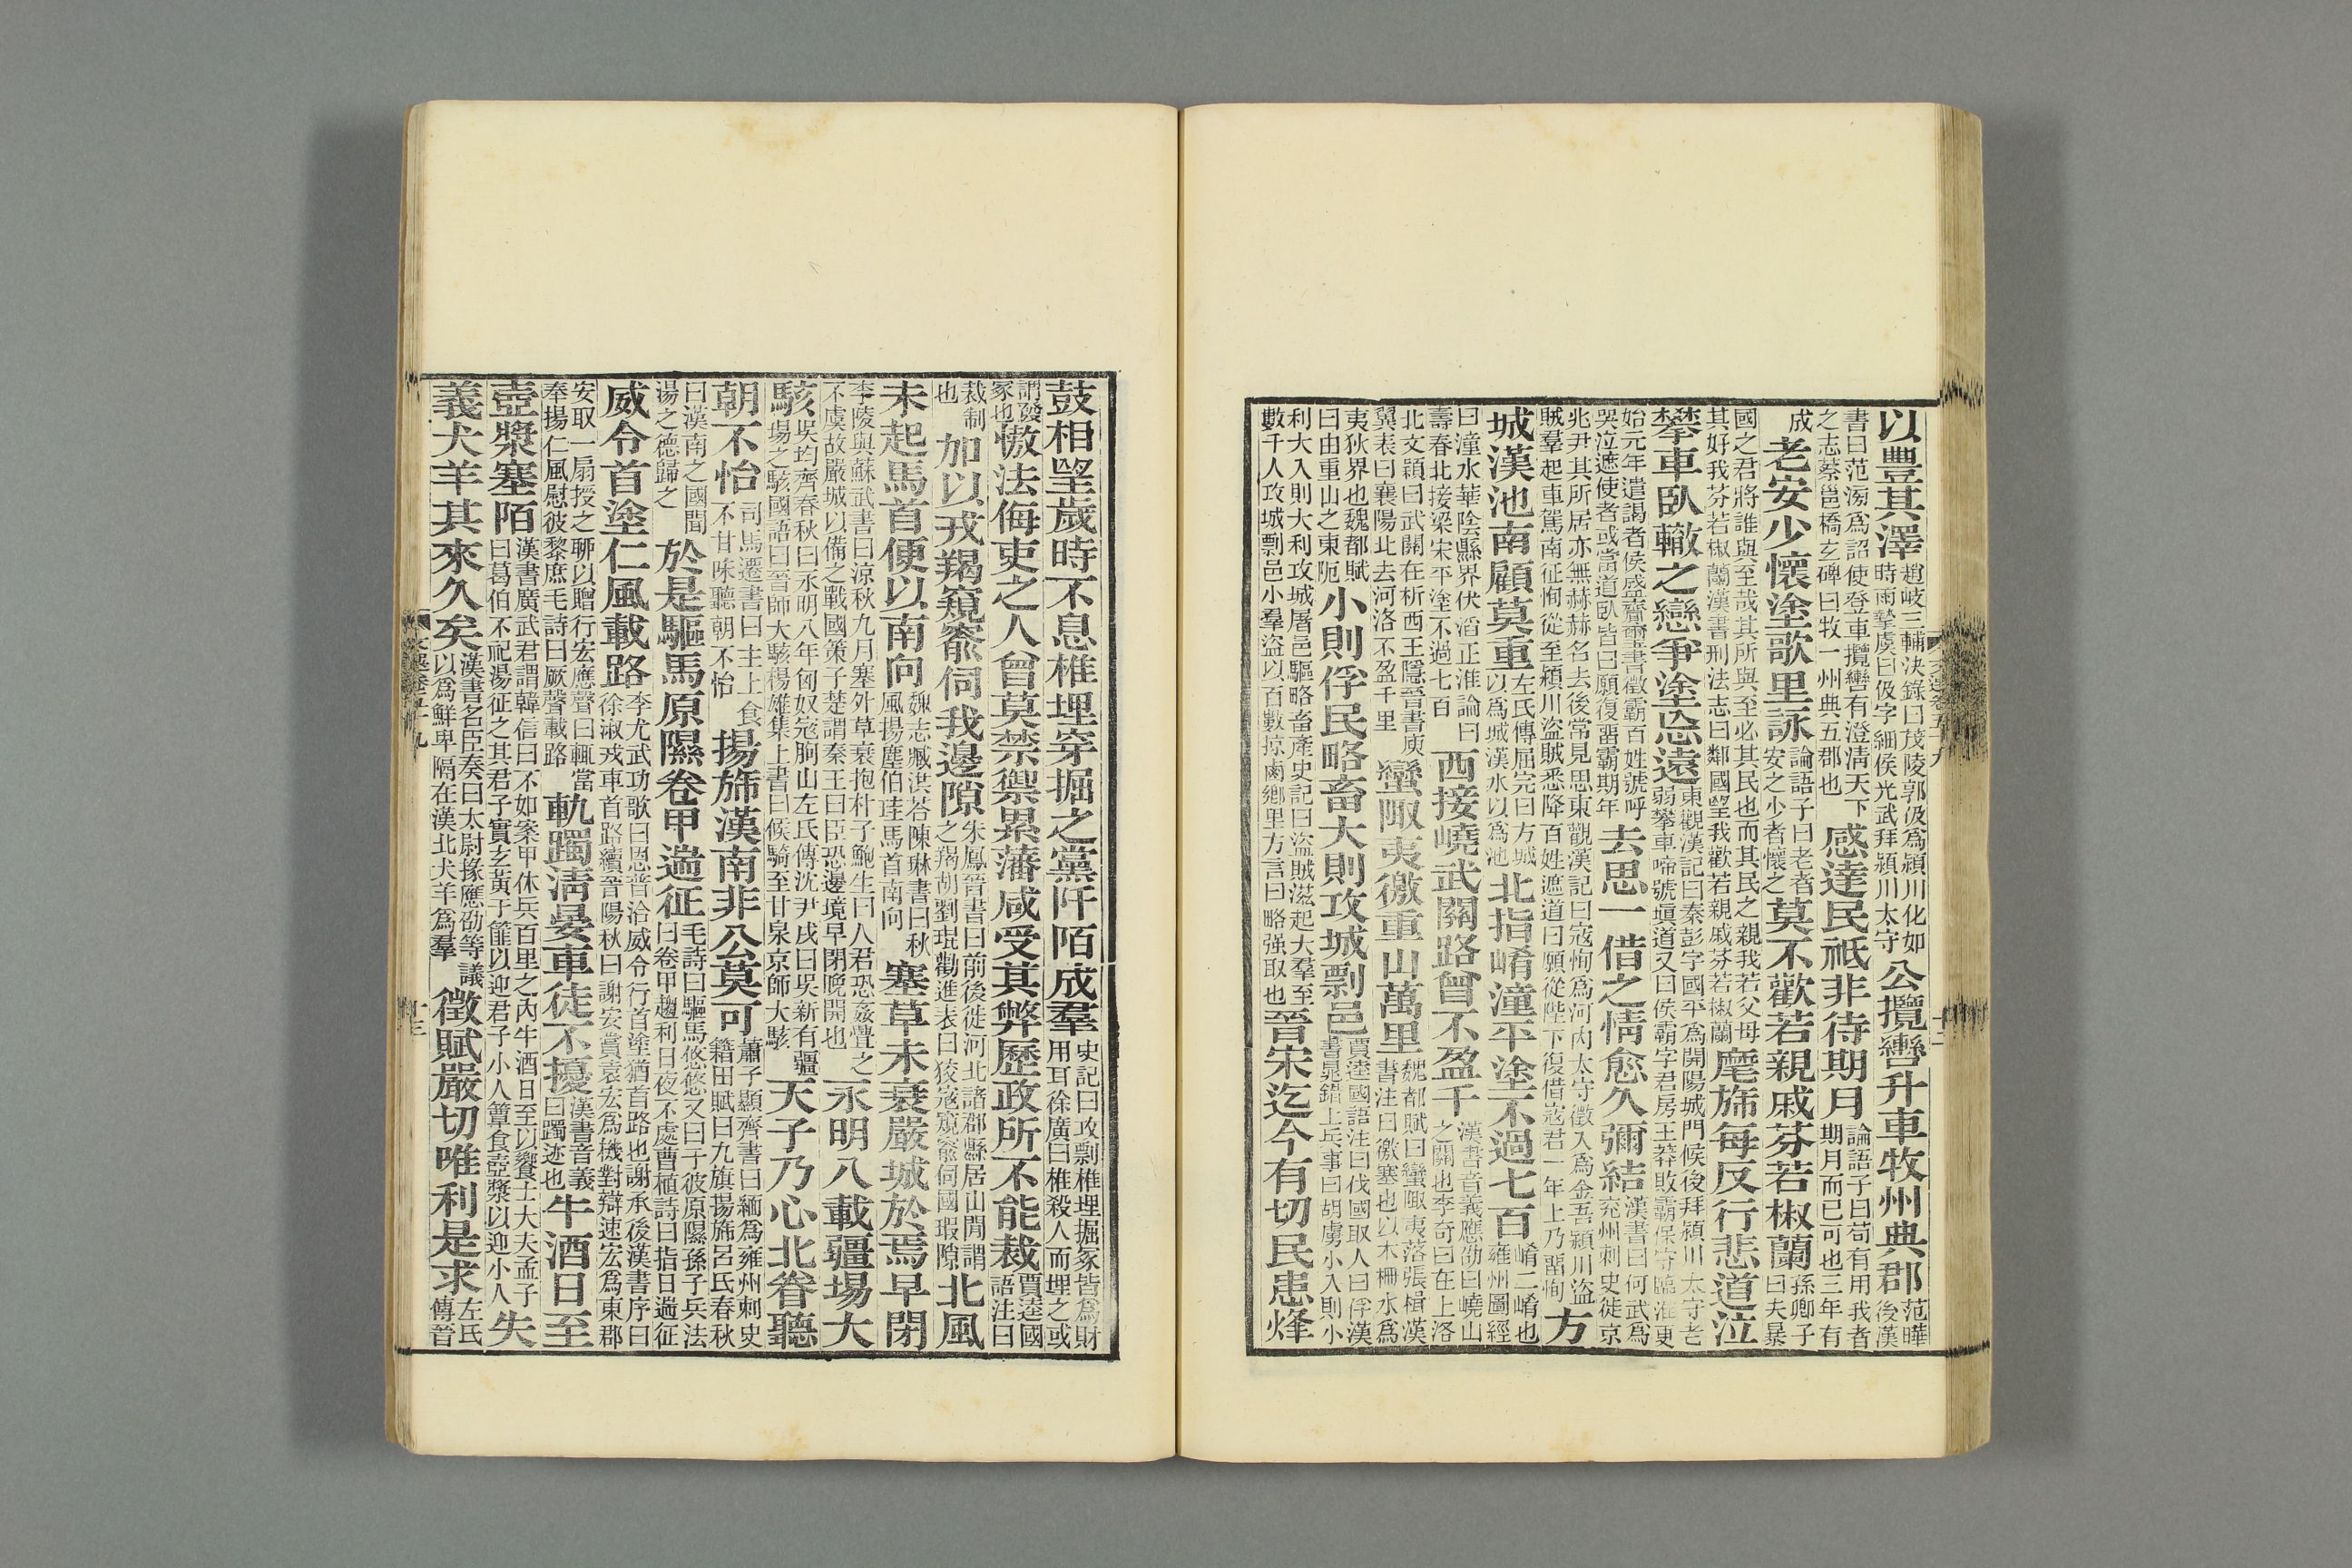 以豐其澤趙岐三輔決錄曰茂陵郭伋爲潁川化如時雨摯虞曰伋字細侯光武拜潁川太守公攬轡升車牧州典郡范曄後漢
書曰范滂爲詔使登車攬轡有澄清天下之志蔡邕橋玄碑曰牧一州典五郡也感達民祇非待期月論語子曰苟有用我者期月而已可也三年有
成老安少懷塗歌里詠論語子曰老者安之少者懷之莫不歡若親戚芬若椒蘭孫卿子曰夫暴
國之君將誰與至哉其所與至必其民也而其民之親我若父母其好我芬若椒蘭漢書刑法志曰鄰國望我歡若親戚芬若椒蘭麾旆每反行悲道泣
攀車臥轍之戀爭塗忘遠東觀漢記曰秦彭字國平爲開陽城門候後拜潁川太守老弱攀車啼號塡道又曰侯霸字君房王莽敗霸保守臨淮更
始元年遣謁者侯盛齎璽書徵霸百姓號呼哭泣遮使者或當道臥皆曰願復畱霸期年去思一借之情愈久彌結漢書曰何武爲兖州刺史徙京
兆尹其所居亦無赫赫名去後常見思東觀漢記曰寇恂爲河內太守徵入爲金吾潁川盜賊羣起車駕南征恂從至潁川盜賊悉降百姓遮道曰願從陛下復借寇君一年上乃畱恂方
城漢池南顧莫重左氏傳屈完曰方城以爲城漢水以爲池北指崤潼平塗不過七百崤二崤也雍州圖經
曰潼水華陰縣界伏滔正淮論曰壽春北接梁宋平塗不過七百西接嶢武關路曾不盈千漢書音義應劭曰嶢山之關也李奇曰在上洛
北文穎曰武關在析西王隱晉書庾翼表曰襄陽北去河洛不盈千里蠻陬夷徼重山萬里魏都賦曰蠻陬夷落張楫漢書注曰徼塞也以木柵水爲
夷狄界也魏都賦曰由重山之東阨小則俘民略畜大則攻城剽邑賈逵國語注曰伐國取人曰俘漢書晁錯上兵事曰胡虜小入則小
利大入則大利攻城屠邑驅略畜產史記曰盜賊滋起大羣至數千人攻城剽邑小羣盜以百數掠鹵鄉里方言曰略强取也晉宋迄今有切民患烽
鼓相望歲時不息椎埋穿掘之黨阡陌成羣史記曰攻剽椎埋掘冢皆爲財用耳徐廣曰椎殺人而埋之或
謂發冢也慠法侮吏之人曾莫禁禦累藩咸受其弊歷政所不能裁賈逵國語注曰
裁制也加以戎羯窺窬伺我邊隙朱鳳晉書曰前後徙河北諸郡縣居山閒謂之羯胡劉琨勸進表曰狡寇窺窬伺國瑕隙北風
未起馬首便以南向魏志臧洪荅陳琳書曰秋風揚塵伯珪馬首南向塞草未衰嚴城於焉早閉
李陵與蘇武書曰涼秋九月塞外草衰抱朴子鮑生曰人君恐姦舋之不虞故嚴城以備之戰國策子楚謂秦王曰臣恐邊境早閉晚開也永明八載疆場大
駭吳均齊春秋曰永明八年匈奴寇朐山左氏傳沈尹戌曰吳新有疆場之駭國語曰晉師大駭楊雄集上書曰候騎至甘泉京師大駭天子乃心北眷聽
朝不怡司馬遷書曰主上食不甘味聽朝不怡揚旆漢南非公莫可蕭子顯齊書曰緬爲雍州刺史籍田賦曰九旗揚旆呂氏春秋
曰漢南之國聞湯之德歸之於是驅馬原隰卷甲遄征毛詩曰驅馬悠悠又曰于彼原隰孫子兵法曰卷甲趨利日夜不處曹植詩曰指日遄征
威令首塗仁風載路李尤武功歌曰恩普洽威令行首塗猶首路也謝承後漢書序曰徐淑戎車首路續晉陽秋曰謝安賞袁宏爲機對辯速宏爲東郡
安取一扇授之聊以贈行宏應聲曰輒當奉揚仁風慰彼黎庶毛詩曰厥聲載路軌躅清晏車徒不擾漢書音義曰躅迹也牛酒日至
壺漿塞陌漢書廣武君謂韓信曰不如案甲休兵百里之內牛酒日至以饗士大夫孟子曰葛伯不祀湯征之其君子實玄黃于篚以迎君子小人簞食壺漿以迎小人失
義犬羊其來久矣漢書名臣奏曰太尉掾應劭等議以爲鮮卑隔在漢北犬羊爲羣徵賦嚴切唯利是求左氏傳晉